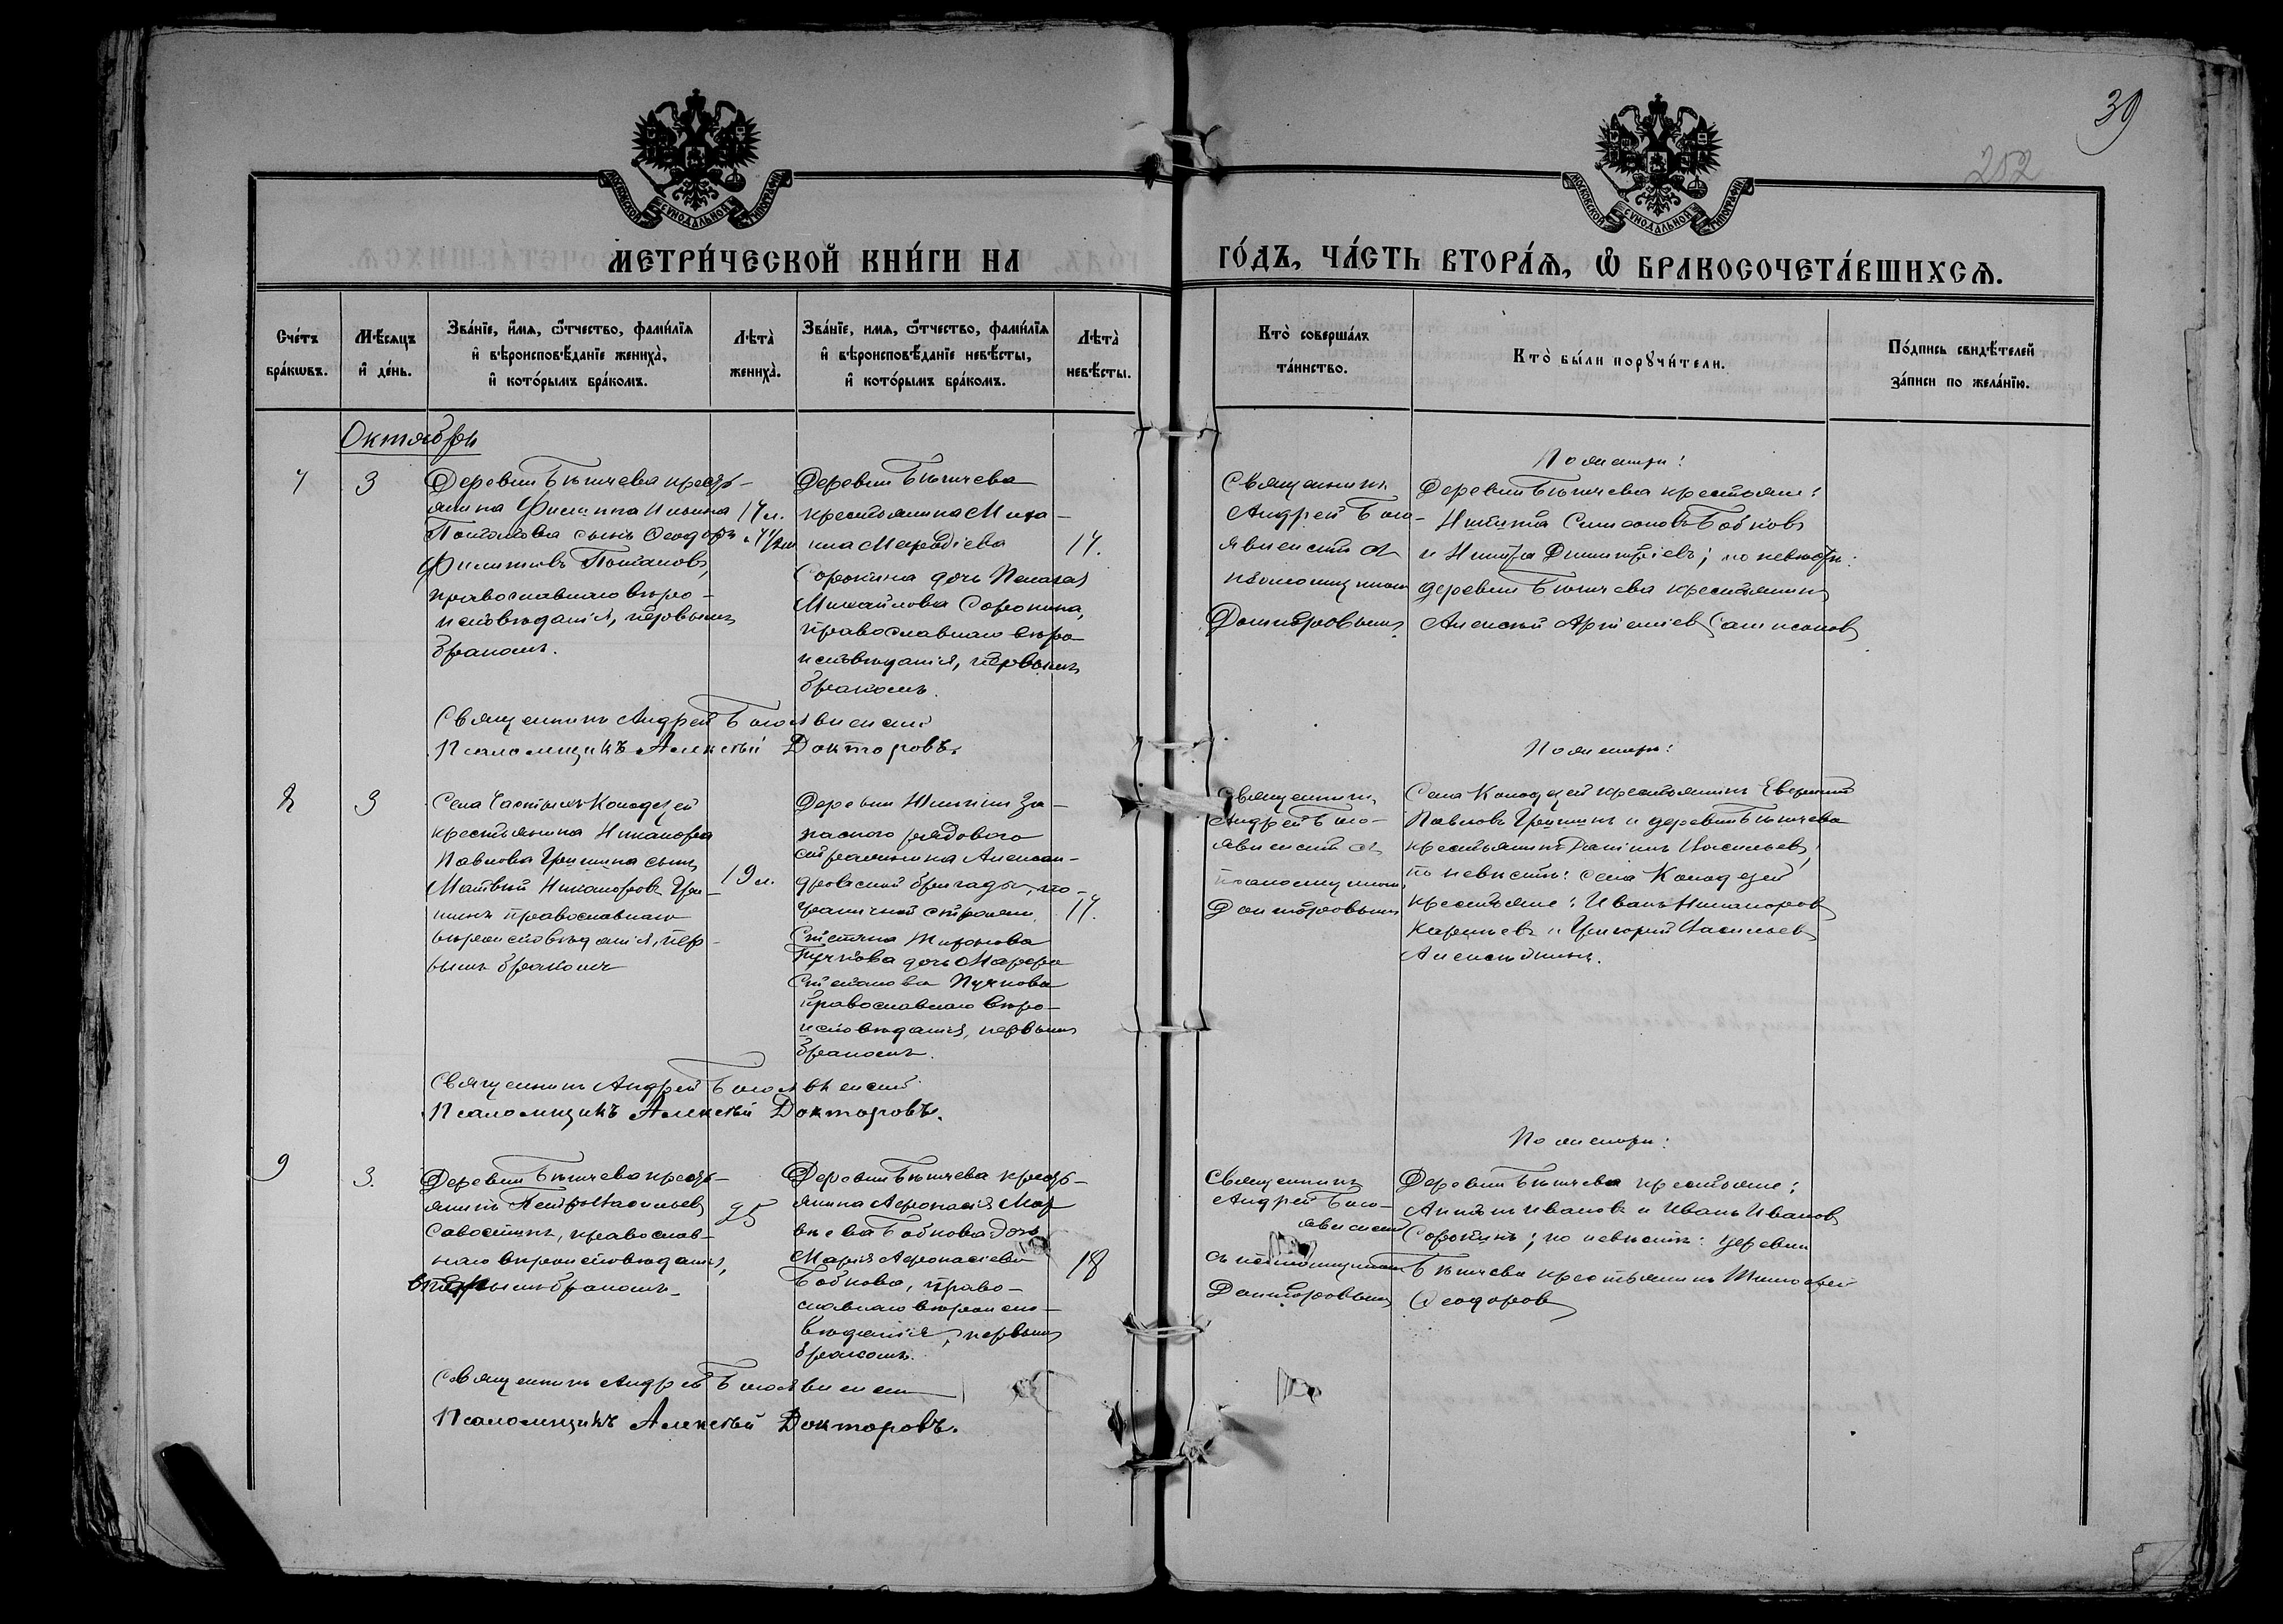 39
252
МОСКОВСКОЙ СѴНОДАЛЬНОЙ ТИПОГРАФІИ
МОСКОВСКОЙ СѴНОДАЛЬНОЙ ТИПОГРАФІИ
МЕТРИ́ЧЕСКОЙ КНИ́ГИ НА
ГО́ДЪ, ЧА́СТЬ ВТОРА́Ѧ, Ѽ БРАКОСОЧЕТА́ВШИХСѦ.
Сче́тъ
бра́кѡвъ.
Мѣ́сѧцъ
и҆ де́нь.
Зва́нїе, и҆́мѧ, ѻ҆́тчество, фами́лїѧ
и҆ вѣроисповѣ́данїе жениха̀,
и҆ кото́рымъ бра́комъ.
Лѣта̀
жениха̀.
Зва́нїе, имѧ, ѻ҆́тчество, фами́лїѧ
и҆ вѣроисповѣ́данїе невѣ́сты,
и҆ кото́рымъ бра́комъ.
Лѣта̀
невѣ́сты.
Кто̀ соверша́лъ
та́инство.
Кто̀ бы́ли порꙋчи́тели.
По́дпись свидѣ́телей
за́писи по жела́нїю.
Октября
7
3
Деревни Бѣгичева кресть-
янина Филиппа Ильина
Потапова сынъ Ѳеодоръ
Филипповъ Потаповъ,
православнаго вѣро-
исповѣданія, первымъ
бракомъ.
17 л.
Деревни Бѣгичева
крестьянина Миха-
ила
Сорокина дочь Пелагея
Михайлова Сорокина,
православнаго вѣро-
исповѣданія, первымъ
бракомъ.
17.
Священникъ
Андрей Бого-
явленскій съ
псаломщикомъ
Докторовымъ
По женихѣ:
Деревни Бѣгичева крестьяне:
Никита Симоновъ Бобковъ
и Никита Димитріевъ; по невѣстѣ:
деревни Бѣгичева крестьянинъ
Алексѣй
Священникъ Андрей Богоявленскій
Псаломщикъ Алексѣй Докторовъ.
8
3
Села Частыхъ Колодезей
крестьянина Никанора
Павлова Гришина сынъ
Матвѣй Никаноровъ Гри-
шинъ православнаго
вѣроисповѣданія, пер-
вымъ бракомъ
19 л.
Деревни
запаснаго рядового
Алексан-
дровской бригады, по-
граничной стражи
Степана Миронова
Пучкова дочь Марѳа
Степанова Пучкова
православнаго вѣро-
исповѣданія, первымъ
бракомъ.
17.
Священникъ
Андрей Бого-
явленскій съ
псаломщикомъ
Докторовымъ
По женихѣ:
Села Колодезей крестьянинъ Евгеній
Павловъ Гришинъ и деревни Бѣгичева
крестьянинъ Васильевъ;
по невѣстѣ: села Колодезей
крестьяне: Иванъ Никаноровъ
и Григорій Васильевъ
Священникъ Андрей Богоявленскій
Псаломщикъ Алексѣй Докторовъ.
9
3.
Деревни Бѣгичева кресть-
янинъ Петръ Васильевъ
Савостинъ, православ-
наго вѣроисповѣданія,
вторымъ бракомъ.
25
Деревни Бѣгичева кресть-
янина Аѳонасія
Бобкова дочь
Марія Аѳонасіева
Бобкова, право-
славнаго вѣроиспо-
вѣданія, первымъ
бракомъ.
18
Священникъ
Андрей Бого-
явленскій
съ псаломщикомъ
Докторовымъ
По женихѣ:
Деревни Бѣгичева крестьяне:
Ивановъ и Иванъ Ивановъ
Сорокинъ; по невѣстѣ: деревни
Бѣгичева крестьянинъ Тимоѳей
Ѳеодоровъ
Священникъ Андрей Богоявленскій
Псаломщикъ Алексѣй Докторовъ.